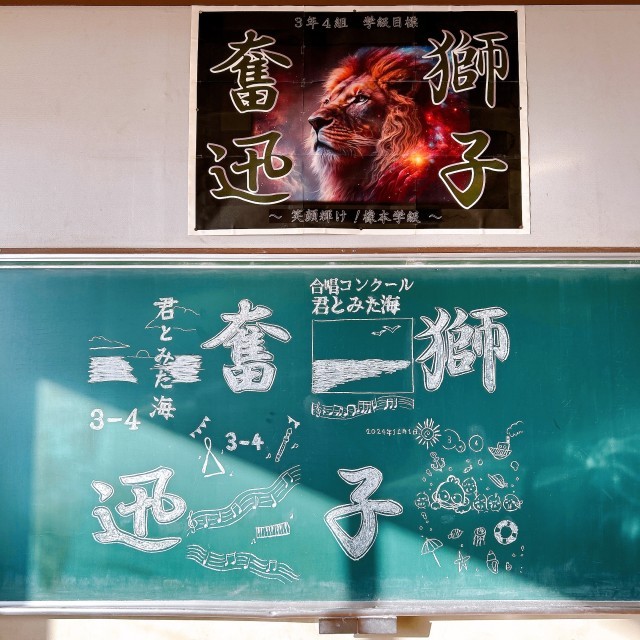 3年4組 学級目標
獅子
奮迅
~ 笑顔輝け!橋本学級 ~
合唱コンクール
君とみた海
獅子
奮迅
君とみた海
3-4
3-4